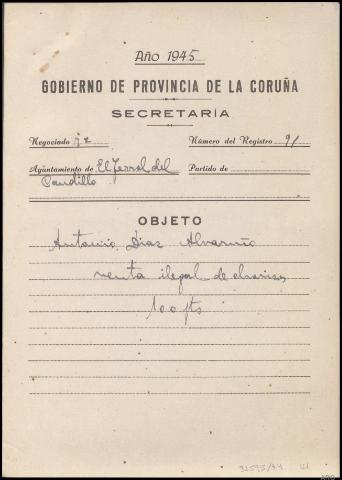 Año 1945
GOBIERNO DE PROVINCIA DE LA CORUÑA
SECRETARÍA
Negociado Número del Registro 91
Ayuntamiento de El Ferrol del Partido de
Caudillo
OBJETO
Antonio Diaz Alvariño
venta ilegal de
100 pts